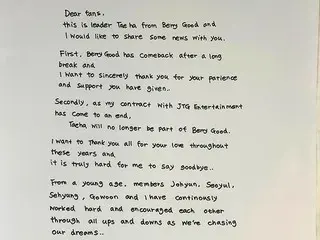 Dear fans,
this is leader Taeha from Berry Good and
I would like to share some news with you.
First, Berry Good has comeback after a long
break and
I want to sincerely thank you for your patience
and support you have given..
Secondly, as my contract with JTG Entertainment
has come to an end,
Taeha will no longer be part of Berry Good.
I want to thank you all for your love throughout
these years and
it is truly hard for me to say goodbye..
From a young age, members Johyun, Seoyul,
Sehyung, Gowoon and I have continously
worked hard and encouraged each other
through all ups and downs as we're chasing
our dreams..